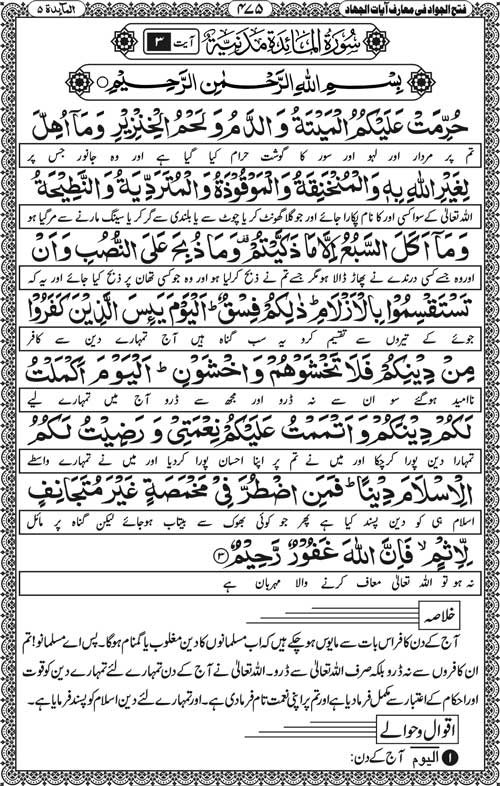 المآىدة ۵
۴۷۵
فتح الجواد فی معارف آیات الجهاد
سُوْرَةُ الْمَآئِدَةِ مَدَنِيَّةٌ آیت ۳
بِسْمِ اللهِ الرَّحْمٰنِ الرَّحِيْمِ
حُرِّمَتْ عَلَيْكُمُ الْمَيْتَةُ وَالدَّمُ وَلَحْمُ الْخِنْزِيْرِ وَمَآ اُهِلَّ
تم پر مردار اور لہو اور سور کا گوشت حرام کیا گیا ہے اور وہ جانور جس پر
لِغَيْرِ اللهِ بِهٖ وَالْمُنْخَنِقَةُ وَالْمَوْقُوْذَةُ وَالْمُتَرَدِّيَةُ وَالنَّطِيْحَةُ
اللہ تعالیٰ کے سوا کسی اور کا نام پکارا جائے اور جو گلا گھونٹ کر یا چوٹ سے یا بلندی سے گر کر یا سینگ مارنے سے مر گیا ہو
وَمَآ اَكَلَ السَّبُعُ اِلَّا مَا ذَكَّيْتُمْ وَمَا ذُبِحَ عَلَى النُّصُبِ وَاَنْ
اور وہ جسے کسی درندے نے پھاڑ ڈالا ہو مگر جسے تم نے ذبح کر لیا ہو اور وہ جو کسی تھان پر ذبح کیا جائے اور یہ کہ
تَسْتَقْسِمُوْا بِالْاَزْلَامِ ؕ ذٰلِكُمْ فِسْقٌ ؕ اَلْيَوْمَ يَىِٕسَ الَّذِيْنَ كَفَرُوْا
جوئے کے تیروں سے تقسیم کرو یہ سب گناہ ہیں آج تمہارے دین سے کافر
مِنْ دِيْنِكُمْ فَلَا تَخْشَوْهُمْ وَاخْشَوْنِ ؕ اَلْيَوْمَ اَكْمَلْتُ
ناامید ہو گئے سو ان سے نہ ڈرو اور مجھ سے ڈرو آج میں تمہارے لیے
لَكُمْ دِيْنَكُمْ وَاَتْمَمْتُ عَلَيْكُمْ نِعْمَتِيْ وَرَضِيْتُ لَكُمُ
تمہارا دین پورا کر چکا اور میں نے تم پر اپنا احسان پورا کردیا اور میں نے تمہارے واسطے
الْاِسْلَامَ دِيْنًا ؕ فَمَنِ اضْطُرَّ فِيْ مَخْمَصَةٍ غَيْرَ مُتَجَانِفٍ
اسلام ہی کو دین پسند کیا ہے پھر جو کوئی بھوک سے بیتاب ہوجائے لیکن گناہ پر مائل
لِّاِثْمٍ ۙ فَاِنَّ اللهَ غَفُوْرٌ رَّحِيْمٌ ۳
نہ ہو تو اللہ تعالیٰ معاف کرنے والا مہربان ہے
خلاصہ
آج کے دن کافر اس بات سے مایوس ہو چکے ہیں کہ اب مسلمانوں کا دین مغلوب یا گمنام ہوگا۔ پس اے مسلمانو! تم
ان کافروں سے نہ ڈرو بلکہ صرف اللہ تعالیٰ سے ڈرو۔ اللہ تعالیٰ نے آج کے دن تمہارے لئے تمہارے دین کو قوت
اور احکام کے اعتبار سے مکمل فرما دیا ہے اور تم پر اپنی نعمت تام فرما دی ہے۔ اور تمہارے لئے دین اسلام کو پسند فرمایا ہے۔
اقوال و حوالے
۱ الیوم آج کے دن: